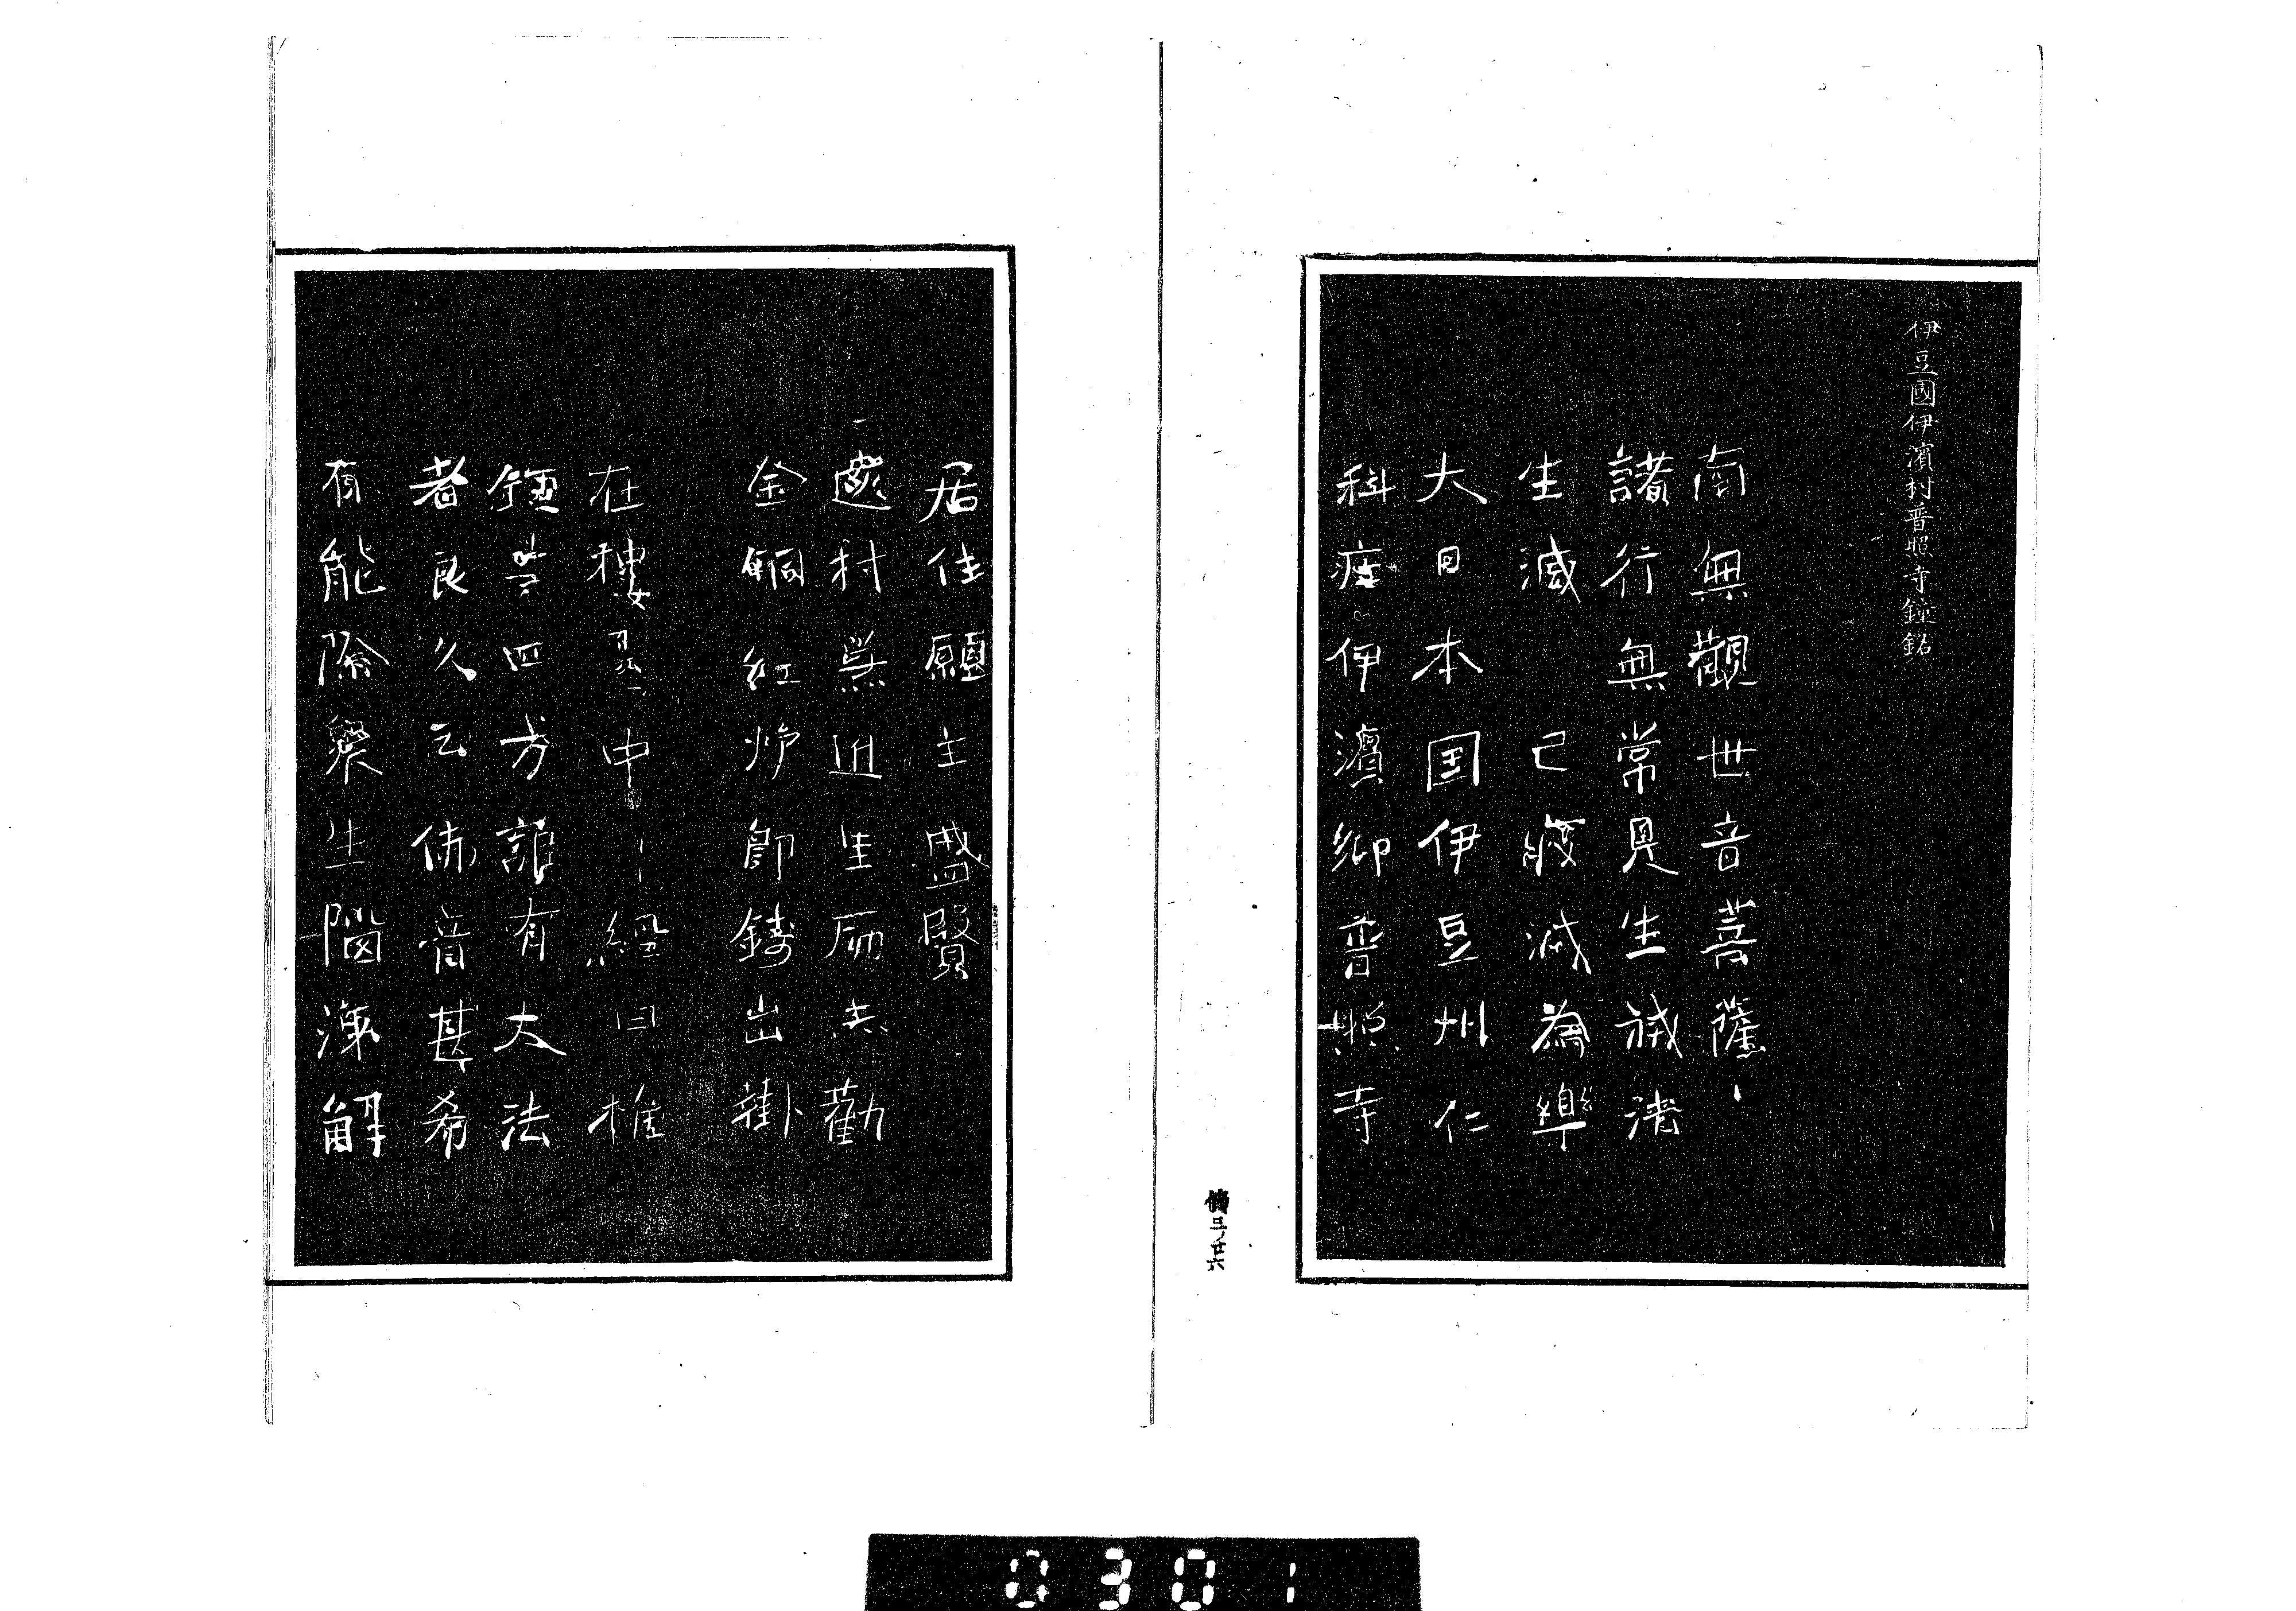 伊豆國伊濱村普照寺鐘銘
南無觀世音菩薩
諸行無常是生滅法
生滅已寂滅為樂
大日本国伊豆州仁
科庄伊濱郷普照寺
居住願主盛賢
村無近生厲志勸
金銅紅炉即鋳出掛
在楼中経日推
鐘声四方誰有大法
者良久云佛音甚希
有能除衆生惱漏解
備三ノ廿六
0301